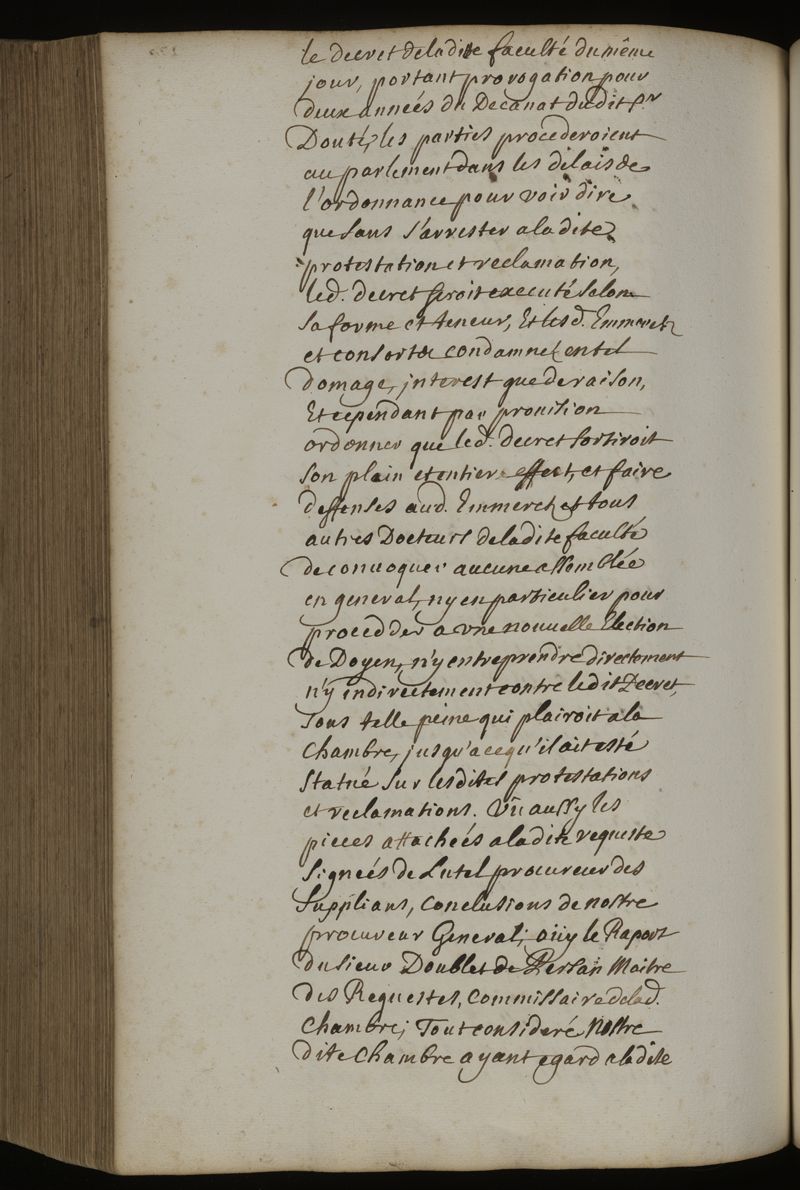 le decret deladite faculté dumême
jour, portant prorogation pour
deux anneés du Decanat dudit Sr
Douté, les parties procederoient
au parlement dans les delais de
l'ordonnance pour voir dire
que sans s'arrester aladite
protestation et reclamation,
led. decret seroit executé selon
sa forme et teneur, Et lesd. Emmerez
et consorts condamnez en tel
domage, interest que de raison,
Et cependant par provision
ordonner que led. decret sortiroit
son plain et entier effect, et faire
deffenses aud. Emmerez et tous
autres Docteurs deladite faculté
de convoquer aucune assemblée
en general, ny en particulier pour
procedder a une nouvelle Election
de Doyen, n'y entreprendre directement
n'y indirectement contre ledit Decret,
sous telle peine qui plairoit ala
Chambre, jusqu'a ce qu'il ait esté
Statué sur lesdites protestations
et reclamations. Vû aussy les
pieces attacheés aladite requeste
signeés de Lutel procureur des
Supplians, Conclusions de nostre
procureur General; oüy le Raport
du sieur Doublet de Persan Maitre
des Requestes, Commissaire delad.
Chambre; Tout consideré Nostre
dite Chambre ayant egard a ladite